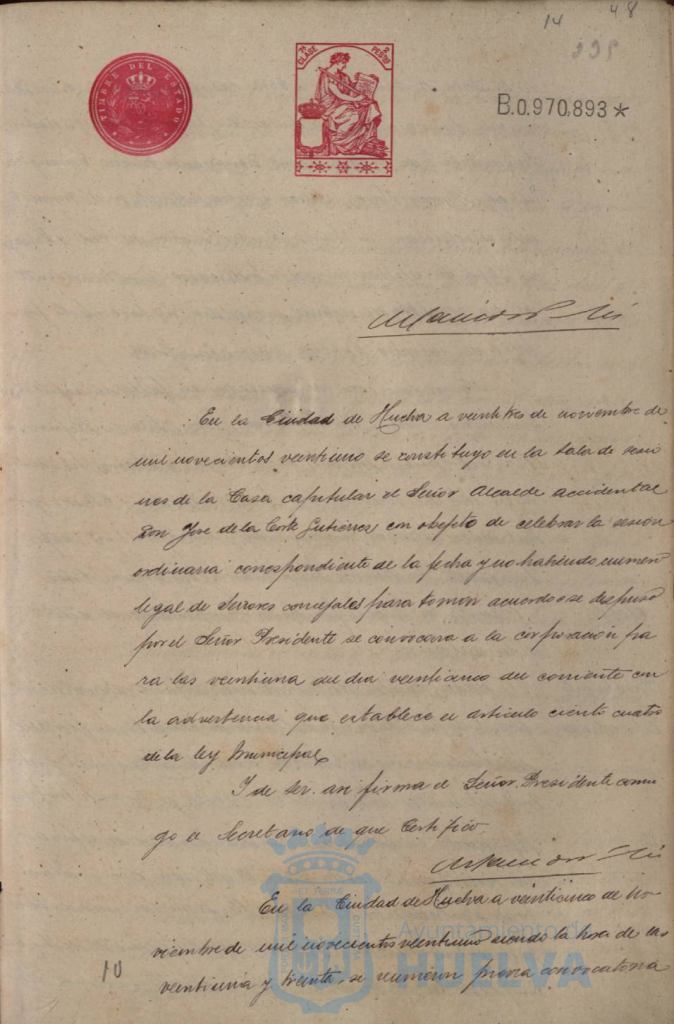 14 48
TIMBRE DEL ESTADO
7ª CLASE 2 PESETAS
B.0.970,893*
En la Ciudad de Huelva a veintitres de noviembre de
mil novecientos veintiuno se constituyo en la Sala de sesio
nes de la Casa capitular el Señor Alcalde accidental
Don Jose de la Corte Gutierrez con obgeto de celebrar la sesion
ordinaria correspondiente de la fecha y no habiendo numero
legal de Señores concejales para tomar acuerdo se dispuso
por el Señor Presidente se convocara a la corporacion pa
ra las veintiuna del dia veinticinco del corriente con
la advertencia que establece el articulo ciento cuatro
de la ley Municipal.
Y de ser asi firma el Señor Presidente conmi
go el Secretario de que Certifico.
En la Ciudad de Huelva a veinticinco de no
viembre de mil novecientos veintiuno siendo la hora de las
veintiuna y treinta, se reunieron previa convocatoria
10
Ayuntamiento de
HUELVA